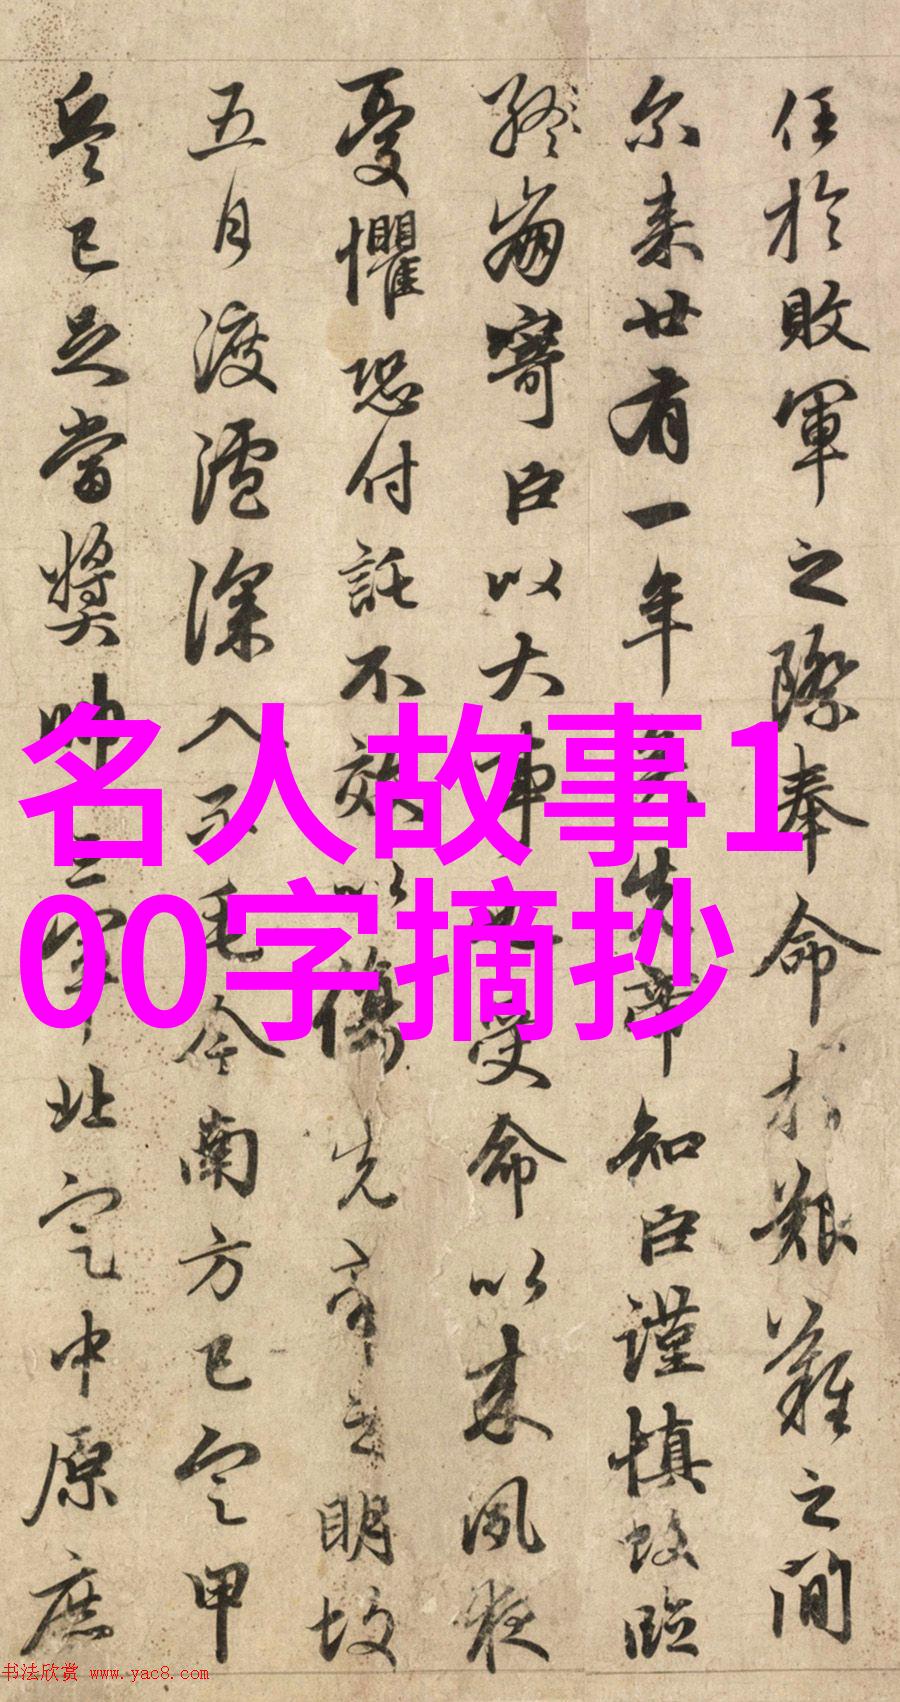 任於敗軍之際奉命於艱難之間
尒来廿有一年矣先帝知臣謹慎故臨
終崩寄臣以大事也受命以来夙夜
憂懼恐付託不效以傷先帝之明故
五月渡瀘深入不毛今南方已定甲
兵已足當奬帥三軍北定中原庶
名人故事1
00字摘抄
书法欣赏 www.yac8.com